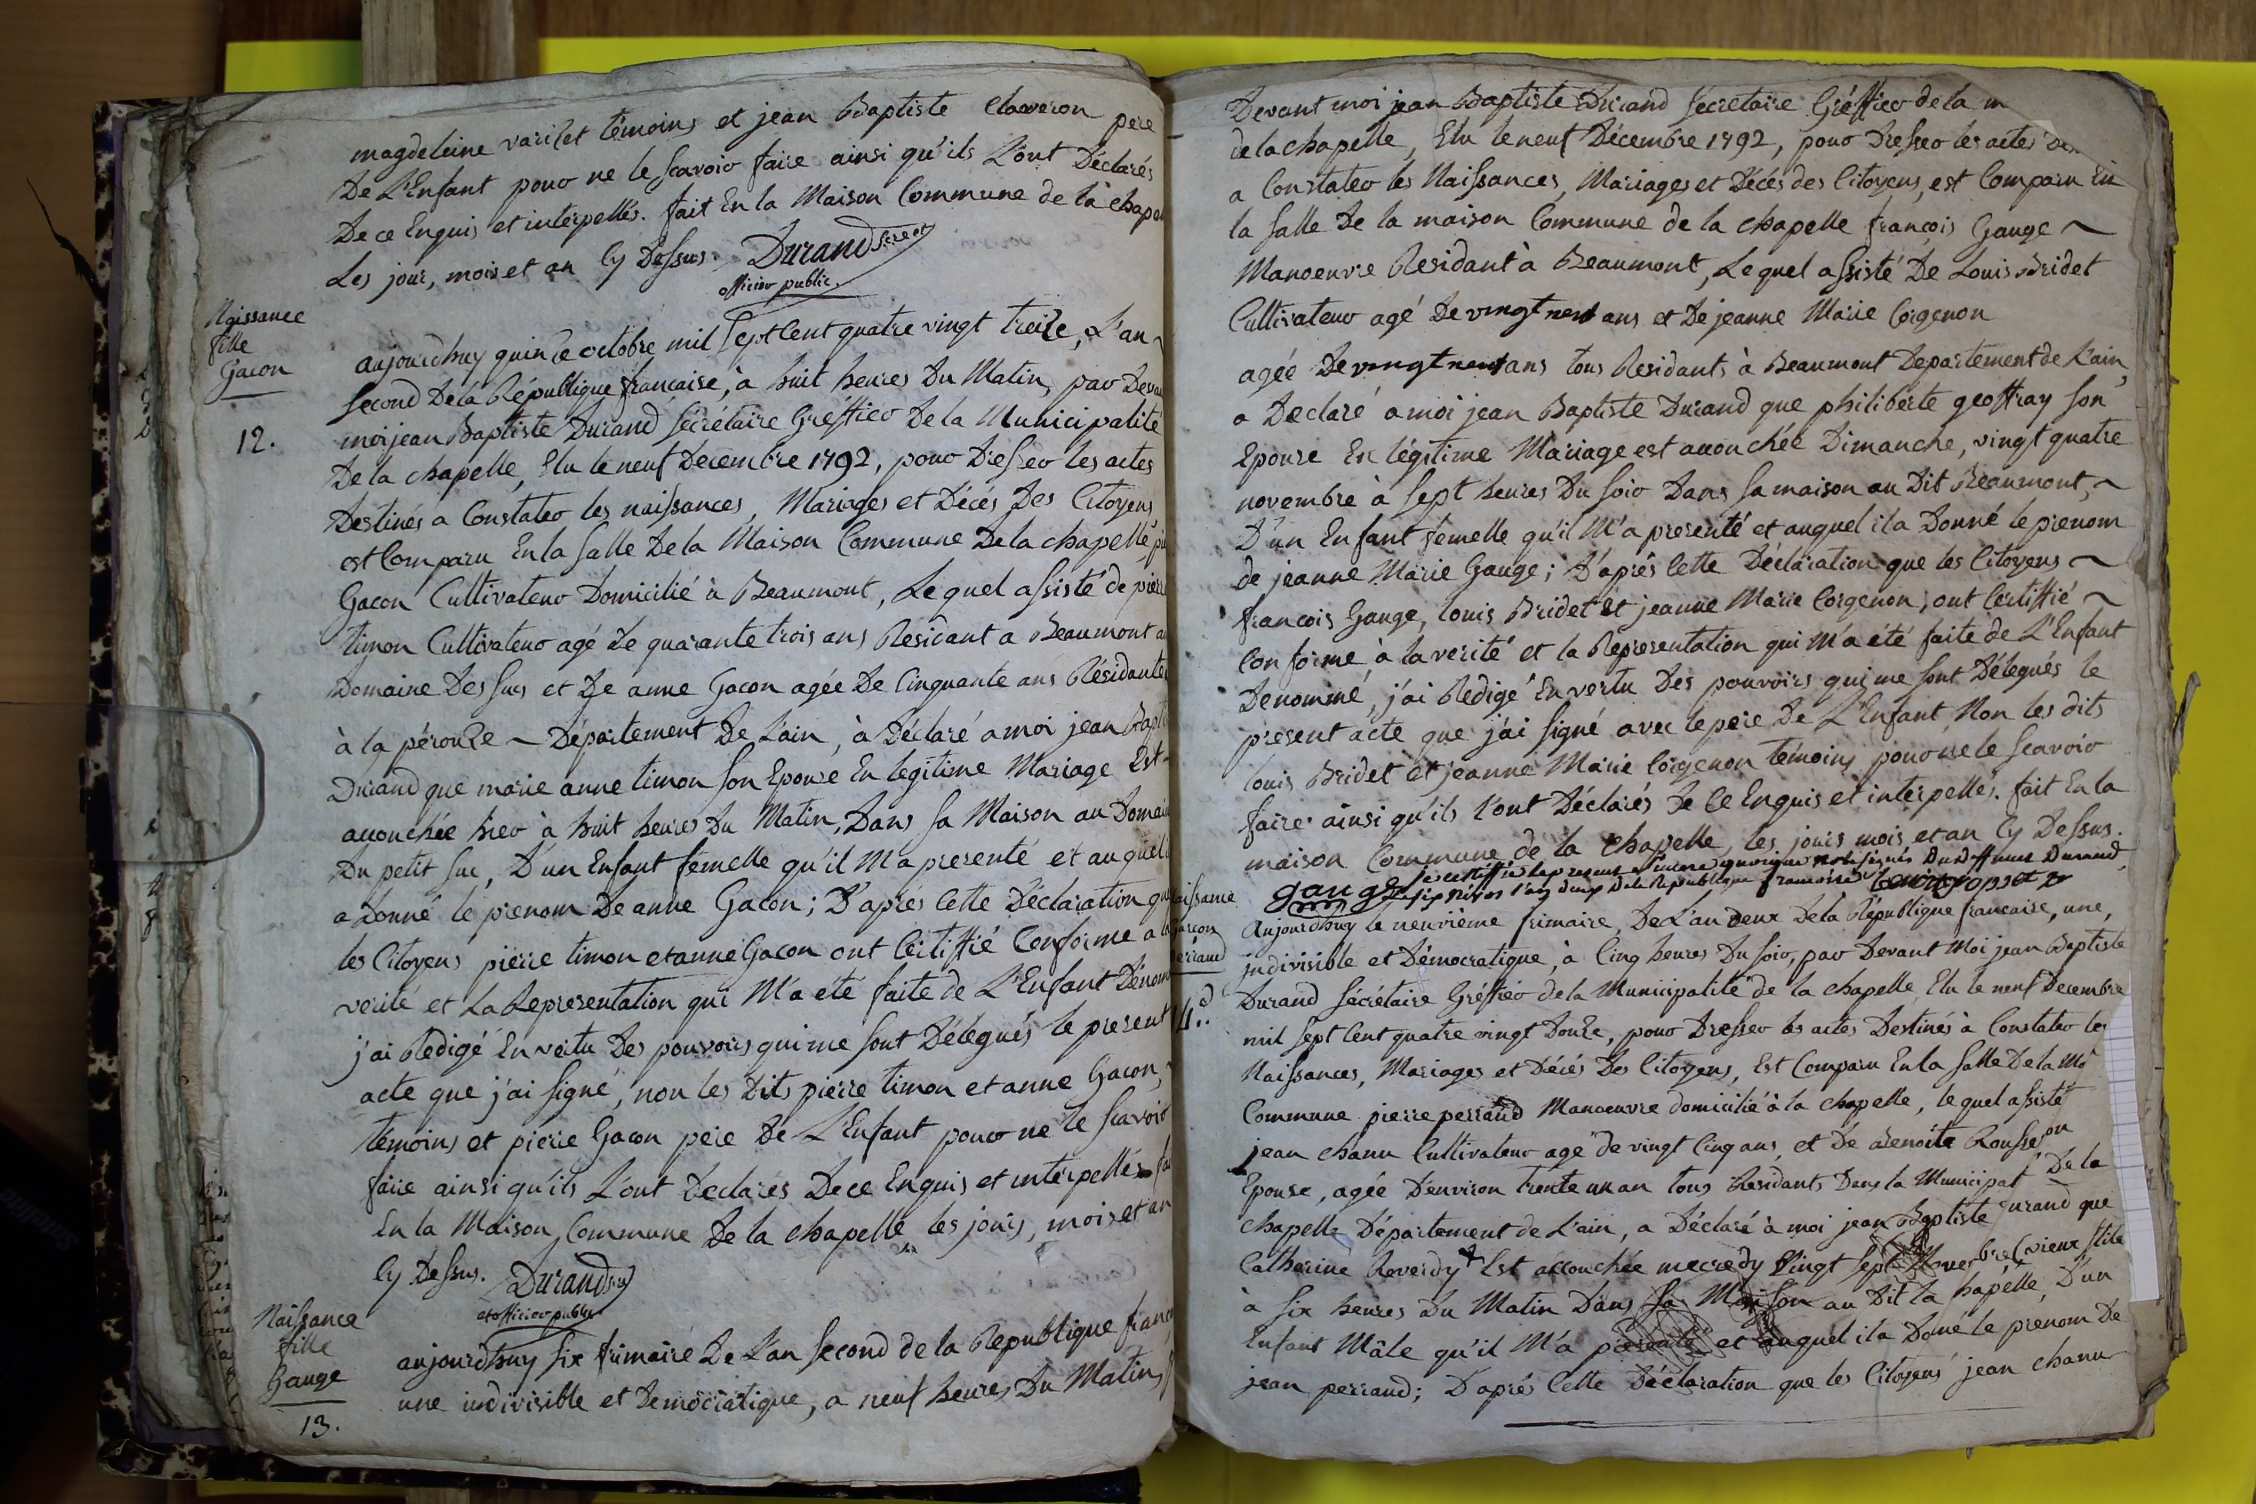 magdeleine varilet témoins et jean Baptiste claveron pere
De L'Enfant pour ne le scavoir faire ainsi qu'ils L'ont Déclarés
De ce Enquis et interpellés. fait En la Maison Commune de la chapel
Les jour, mois et an Cy Dessus. Durand Secret
officier public.
Naissance
fille
Gacon
12.
aujourdhuy quinze octobre mil sept Cent quatre vingt treize, L'an
second De la République française, à huit heures Du Matin, par Devan
moi jean Baptiste Durand sécrétaire Gréffier De la Municipalité
De la chapelle, Elu le neuf Décembre 1792, pour Dresser les actes
Destinés a Constater les naissances, Mariages et Décés Des Citoyens
est Comparu En la salle De la Maison Commune De la chapelle pi
Gacon Cultivateur Domicilié à Beaumont, Lequel assisté de pierre
timon Cultivateur agé de quarante trois ans Résidant a Beaumont au
Domaine Des sucs et De anne Gacon agée De Cinquante ans Résidante
à la pérouze ~ Département De L'ain, à Déclaré a moi jean Bapti
Durand que marie anne timon son Epouse En legitime Mariage Est
accouchée hier à huit heures Du Matin, Dans sa Maison au Domain
Du petit suc, D'un Enfant femelle qu'il M'a presenté et auquel i
a Donné le prenom De anne Gacon ; D'aprés Cette Déclaration que
les Citoyens pierre timon et anne Gacon ont Certiffié Conforme a la
verité et La Representation qui M'a été faite de L'Enfant Dénom
j'ai Rédigé En vertu Des pouvoirs qui me sont Délégués le present
acte que j'ai signé, non les Dits pierre timon et anne Gacon,
témoins et pierre Gacon pere De L'Enfant pour ne le scavoir
faire ainsi qu'ils L'ont Déclarés De ce Enquis et interpellés fai
En la Maison Commune De la chapelle les jours, mois et an
Cy Dessus. Durand
et officier public
Naissance
fille
Gauge
13.
aujourdhuy six frimaire De L'an second de la République franc
une indivisible et Démocratique, a neuf heures Du Matin,
Devant moi jean Baptiste Durand sécretaire Gréffier de la m
de la chapelle, Elu le neuf Décembre 1792, pour Dresser les actes Des
a Constater les Naissances, Mariages et Décés des Citoyens, est Comparu En
la salle De la maison Commune de la chapelle françois Gauge ~
Manoeuvre Résidant à Beaumont, Lequel assisté De Louis Bridet
Cultivateur agé De vingt neuf ans et De jeanne Marie Corgenon
agée De vingt neuf ans tous Residants à Beaumont Departement de L'ain,
a Declaré a moi jean Baptiste Durand que philiberte geoffray son
Epouse En légitime Mariage est accouchée Dimanche, vingt quatre
novembre à sept heures Du soir Dans sa maison au Dit Beaumont, ~
D'un Enfant femelle qu'il M'a presenté et auquel il a Donné le prenom
de jeanne Marie Gauge ; D'aprés Cette Déclaration que les Citoyens ~
françois Gauge, louis Bridet et jeanne Marie Corgenon, ont Certiffié ~
Conforme à la verité et la Representation qui M'a été faite de L'Enfant
Denommé, j'ai Redigé En vertu Des pouvoirs qui me sont Délegués le
present acte que j'ai signé avec le pere De L'Enfant Non les dits
louis Bridet et jeanne Marie Corgenon témoins pour ne le scavoir
faire ainsi qu'ils L'ont Déclarés De Ce Enquis et interpellés. fait En la
maison Commune de la chapelle, les jours mois et an Cy Dessus.
je certiffie le present sincere quoique non signé Du deffunt Durand
gauge
Naissance
garçon
Perrand
aujourdhuy le neuvième frimaire De L'an Deux De la République francaise, une,
indivisible et Démocratique, à Cinq heures Du soir, par Devant Moi jean Baptiste
Durand sécrétaire Gréffier de la Municipalité de la chapelle Elu le neuf Decembre
mil sept Cent quatre vingt Douze, pour Dresser les actes Destinés à Constater les
Naissances, Mariages et Décés Des Citoyens, Est Comparu En la salle De la Mai
Commune pierre perrand Manoeuvre domicilié à la chapelle, lequel assisté
jean chanu Cultivateur agé de vingt Cinq ans, et De Benoite Rousson
Epouse, agée D'environ trente un an tous Residants Dans la Municipat De la
chapelle Département de L'ain, a Déclaré à moi jean Baptiste Durand que
Catherine Reverdy + Est accouchée mecredy Vingt sept Novembre (vieux stile
à six heures Du Matin Dans sa Maison au Dit la chapelle, D'un
Enfant Mâle qu'il M'a presenté et auquel il a Doné le prenom De
jean perrand ; D'aprés Cette Déclaration que les Citoyens jean chanu